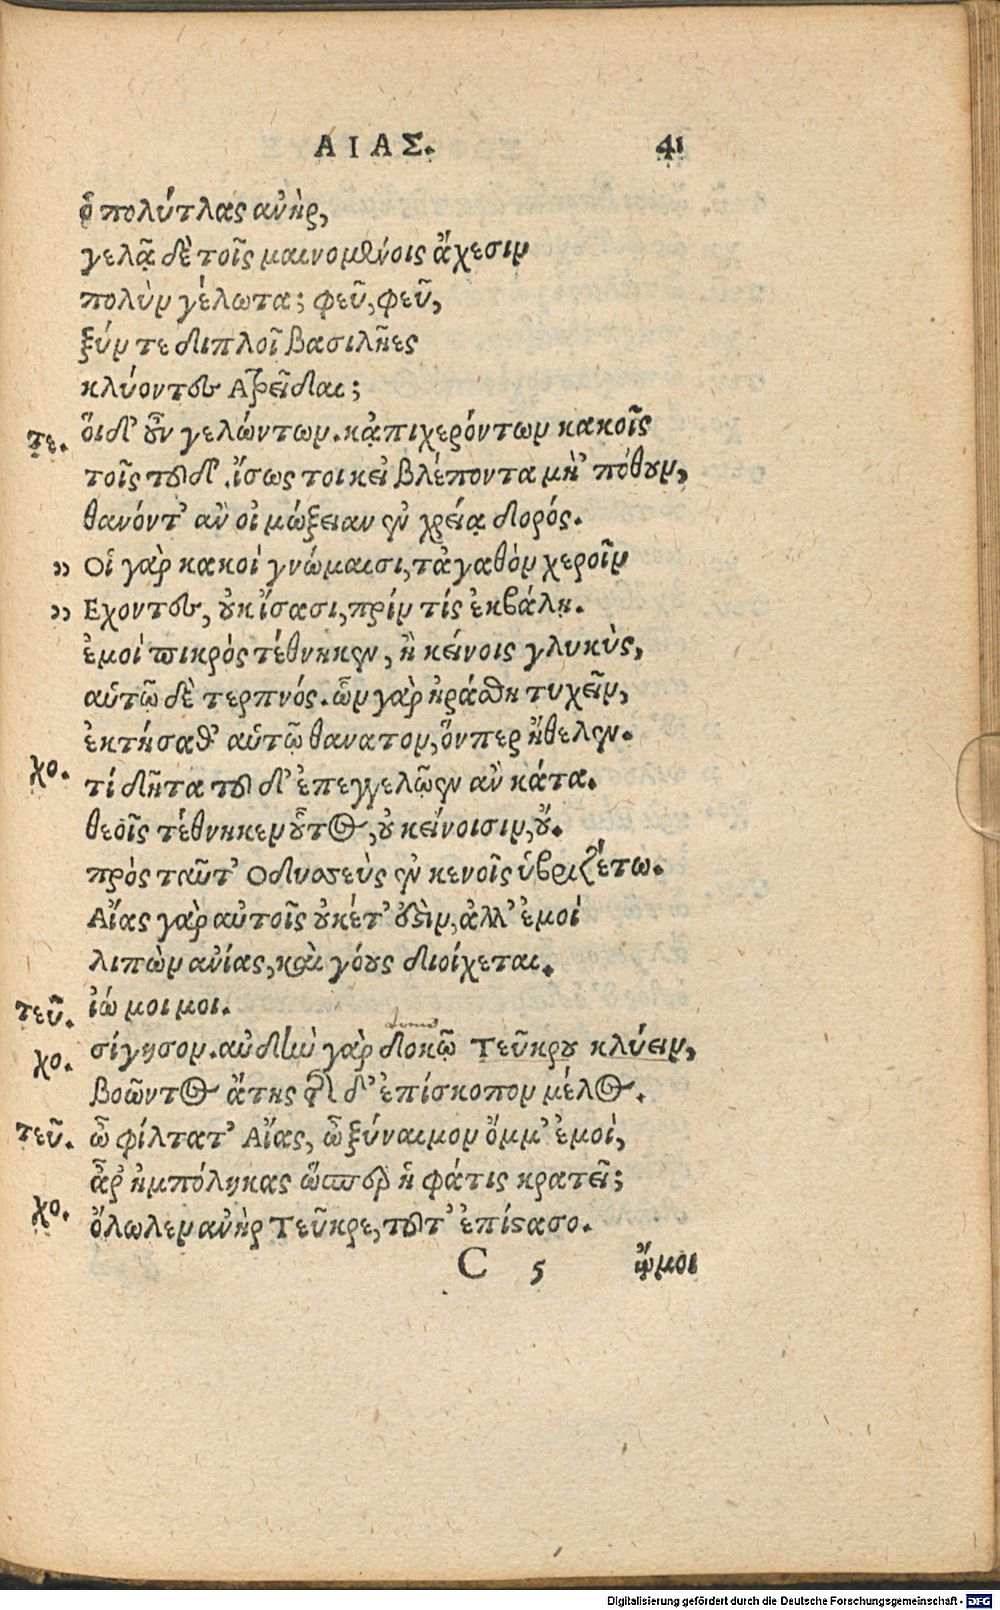 ΑΙΑΣ. 41
ὁ πολύτλας ἀνὴρ,
γελᾷ δὲ τοῖς μαινομένοις ἄχεσιν
πολὺν γέλωτα; φεῦ, φεῦ,
ξύν τε διπλοῖ βασιλῆες
κλύοντες Ἀτρεῖδαι;
τε. ὅιδ' οὖν γελώντων. κᾀπιχερόντων κακοῖς
τοῖς τοῦδ'. ἴσως τοι κεἰ βλέποντα μὴ' πόθουν,
θανόντ' ἂν οἰμώξειαν ἐν χρείᾳ δορός.
" Οἱ γὰρ κακοὶ γνώμαισι, τἀγαθὸν χεροῖν
" Εχοντες, οὐκ ἴσασι, πρίν τίς ἐκβάλῃ.
ἐμοὶ πικρὸς τέθνηκεν, ἢ κείνοις γλυκὺς,
αὑτῷ δὲ τερπνός. ὧν γὰρ ἠράσθη τυχεῖν,
ἐκτήσαθ' αὑτῷ θανατον, ὅνπερ ἤθελεν.
χο. τί δῆτα τοῦδ' ἐπεγγελῷεν ἂν κάτα.
θεοῖς τέθνηκεν οὗτος, οὐ κείνοισιν, οὔ.
πρὸς ταῦτ' Οδυσσεὺς ἐν κενοῖς ὑβριζέτω.
Αἴας γὰρ αὐτοῖς οὐκέτ' ὀυσὶν, ἀλλ' ἐμοὶ
λιπὼν ἀνίας, καὶ γόους διοίχεται.
τεῦ. ἰώ μοι μοι.
χο. σίγησον. αὐδὴν γὰρ δοκῶ Τεῦκρου κλύειν,
βοῶντος ἄτης τῆσδ' ἐπίσκοπον μέλος.
τεῦ. ὦ φίλτατ' Αἴας, ὦ ξύναιμον ὄμμ' ἐμοὶ,
ἆρ' ἠμπόληκας ὥσπερ ἡ φάτις κρατεῖ;
χο. ὄλωλεν ἀνὴρ Τεῦκρε, τοῦτ' ἐπίστασο.
C 5 ᾤμοι
Digitalisierung gefördert durch die Deutsche Forschungsgemeinschaft - DFG